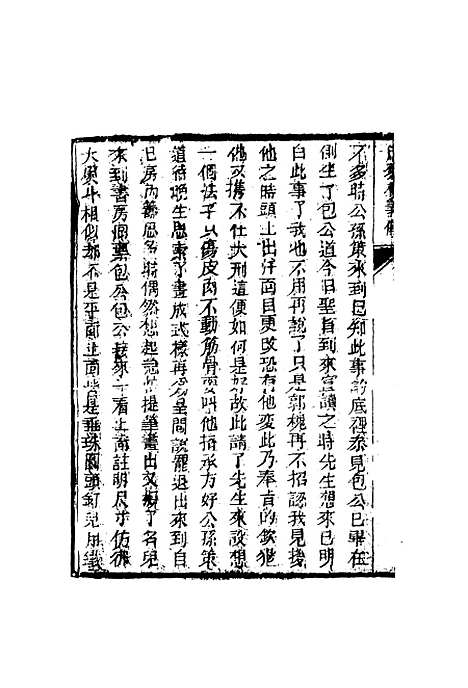 不多時公孫策來到已知此事的底裡參見包公已畢在
側坐了包公道今日聖旨到來宣讀之時先生想來已明
白此事了我也不用再說了只是郭槐再不招認我見拷
他之時頭上出汗面目更改恐有他變此乃奉旨的欽犯
他又搪不住大刑這便如何是好故此請了先生來設想
一個法子只傷皮肉不動筋骨要叫他招承方好公孫策
道待晚生思索了畫成式樣再為呈閱說罷退出來到自
己房內籌思多時偶然想起急忙提筆畫出又擬了名兒
來到書房回稟包公包公接來一看上面註明尺寸仿彿
大熨斗相似却不是平面上面皆是垂珠圓頭釘兒用鐵